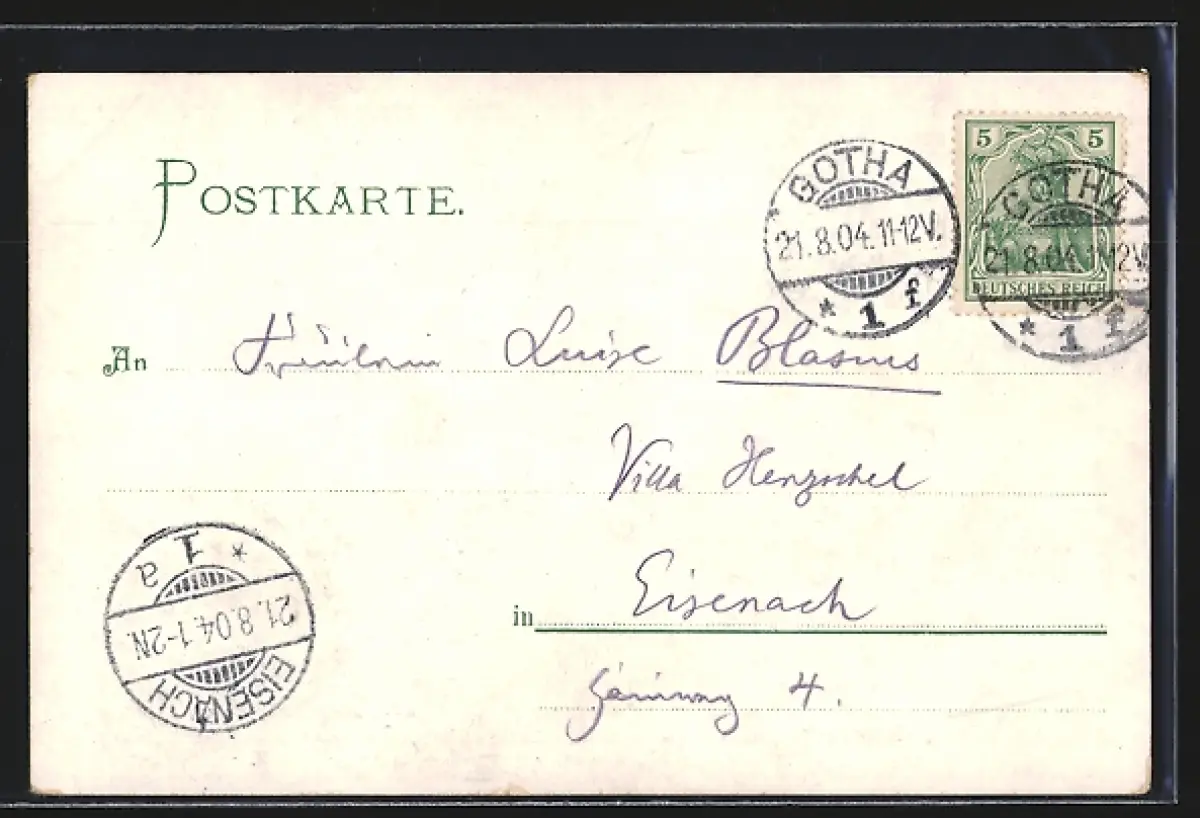 POSTKARTE.
5 5
DEUTSCHES REICH
GOTHA
21.8.04.11-12V.
* 1 f
GOTHA
21.8.04.11-12V.
* 1 f
An Fräulein Luise Blasius
Villa Henzschel
in Eisenach
4.
EISENACH
21.8.04.1-2N.
* 1 a